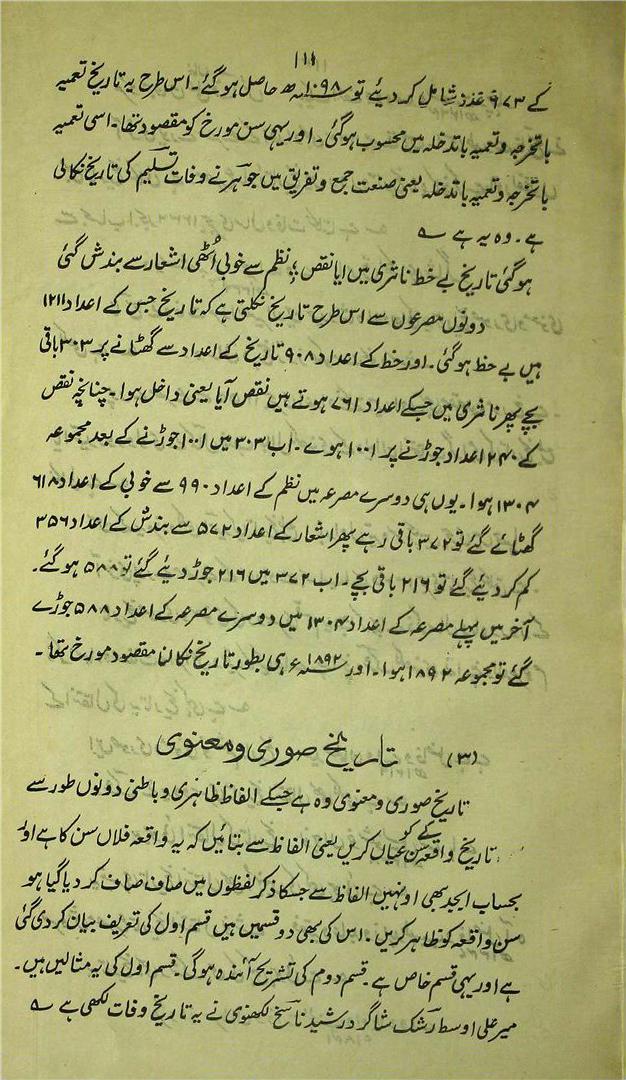 ۱۱۱
کے ۹۷۳ عدد شامل کر دیئے تو ۱۰۹۸ھ حاصل ہوگئے۔ اس طرح یہ تاریخ تعمیہ
باتخرجہ و تعمیہ باتدخلہ میں محسوب ہوگئی۔ اور یہی سن مورخ کو مقصود تھا۔ اسی تعمیہ
باتخرجہ و تعمیہ باتدخلہ یعنی صنعت جمع و تفریق میں جوہر نے وفات تسلیم کی تاریخ نکالی
ہے۔ وہ یہ ہے ؎
ہوگئی تاریخ بے خط ناثری میں آیا نقص ؛ نظم سے خوبی اُٹھی اشعار سے بندش گئی
دونوں مصرعوں سے اس طرح تاریخ نکلتی ہے کہ تاریخ جس کے اعداد ۱۲۱۱
ہیں بے حظ ہوگئی۔ اور خط کے اعداد ۹۰۸ تاریخ کے اعداد سے گھٹانے پر ۳۰۳ باقی
بچے پھر ناثری میں جسکے اعداد ۷۶۱ ہوتے ہیں نقص آیا یعنی داخل ہوا۔ چنانچہ نقص
کے ۲۴۰ اعداد جوڑنے پر ۱۰۰۱ ہوے۔ اب ۳۰۳ میں ۱۰۰۱ جوڑنے کے بعد مجموعہ
۱۳۰۴ ہوا۔ یوں ہی دوسرے مصرعہ میں نظم کے اعداد ۹۹۰ سے خوبی کے اعداد ۶۱۸
گھٹائے گئے تو ۳۷۲ باقی رہے پھر اشعار کے اعداد ۵۷۲ سے بندش کے اعداد ۳۵۶
کم کر دیئے گئے تو ۲۱۶ باقی بچے۔ اب ۳۷۲ میں ۲۱۶ جوڑ دیئے گئے تو ۵۸۸ ہوگئے۔
آخر میں پہلے مصرعہ کے اعداد ۱۳۰۴ میں دوسرے مصرعہ کے اعداد ۵۸۸ جوڑے
گئے تو مجموعہ ۱۸۹۲ ہوا۔ اور ۱۸۹۲ء ہی بطور تاریخ نکالنا مقصود مورخ تھا۔
(۳) تاریخ صوری و معنوی
تاریخ صوری و معنوی وہ ہے جسکے الفاظ ظاہری و باطنی دونوں طور سے
تاریخ واقعہ کے سن کو عیاں کریں یعنی الفاظ سے بتائیں کہ یہ واقعہ فلاں سن کا ہے اور
بحساب ابجد بھی اونہیں الفاظ سے جسکا ذکر لفظوں میں صاف صاف کر دیا گیا ہو
سن واقعہ کو ظاہر کریں۔ اس کی بھی دو قسمیں ہیں قسم اول کی تعریف بیان کر دی گئی
ہے اور یہی قسم خاص ہے۔ قسم دوم کی تشریح آئندہ ہوگی۔ قسم اول کی یہ مثالیں ہیں۔
میر علی اوسط رشک شاگرد رشید ناسخ لکھنوی نے یہ تاریخ وفات لکھی ہے ؎